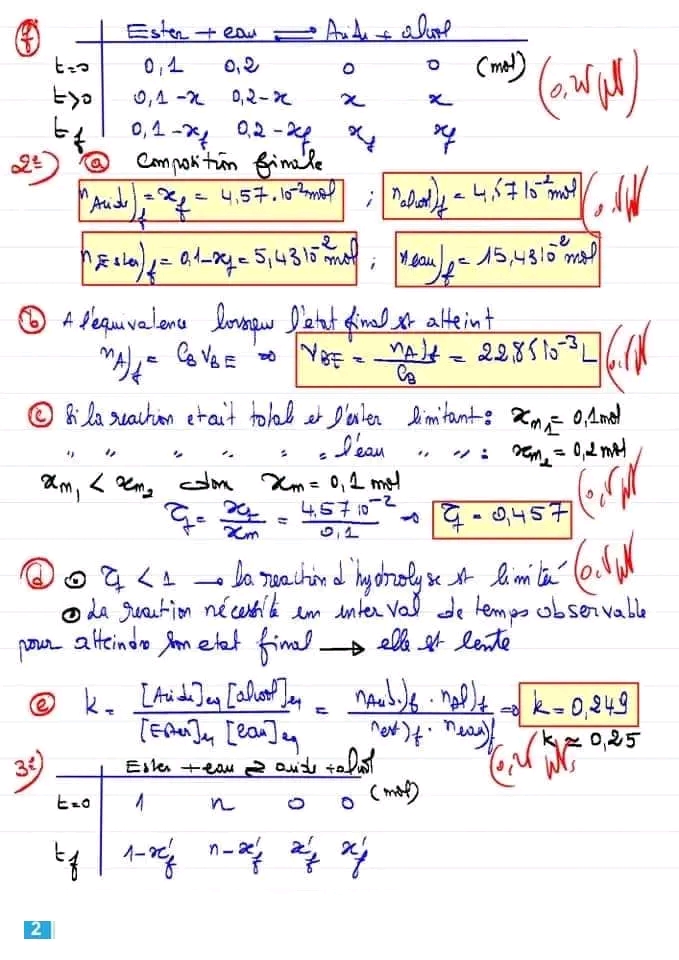 f) Ester + eau ⇌ Acide + alcool
t=0 0,1 0,2 0 0 (mol)
t>0 0,1 -x 0,2-x x x (0,25 pt)
t_f 0,1-x_f 0,2-x_f x_f x_f
2°) a) Composition finale
n_Acide)_f = x_f = 4,57.10^-2 mol ; n_alcool)_f = 4,57 10^-2 mol
n_Ester)_f = 0,1-x_f = 5,43 10^-2 mol ; n_eau)_f = 15,43 10^-2 mol
b) A l'équivalence lorsque l'état final est atteint
n_A)_f = C_B V_BE ⇒ V_BE = n_A)_f / C_B = 22,85 10^-3 L
c) Si la reaction etait total et l'ester limitant : x_m1 = 0,1 mol
" " " " " " l'eau " " : x_m2 = 0,2 mol
x_m1 < x_m2 donc x_m = 0,1 mol
τ_f = x_f / x_m = 4,57 10^-2 / 0,1 → τ_f = 0,457
d) • τ_f < 1 → la reaction d'hydrolyse est limitée
• La reaction nécessité em interval de temps observable
pour atteindre son etat final → elle est lente
e) k = [Acide]_eq [alcool]_eq / [Ester]_eq [eau]_eq = n_Acid)_f . n_Al)_f / n_est)_f . n_eau)_f ⇒ k = 0,249
k ≈ 0,25
3°) Ester + eau ⇌ acide + alcool
t=0 1 n 0 0 (mol)
t_f 1-x'_f n-x'_f x'_f x'_f
2